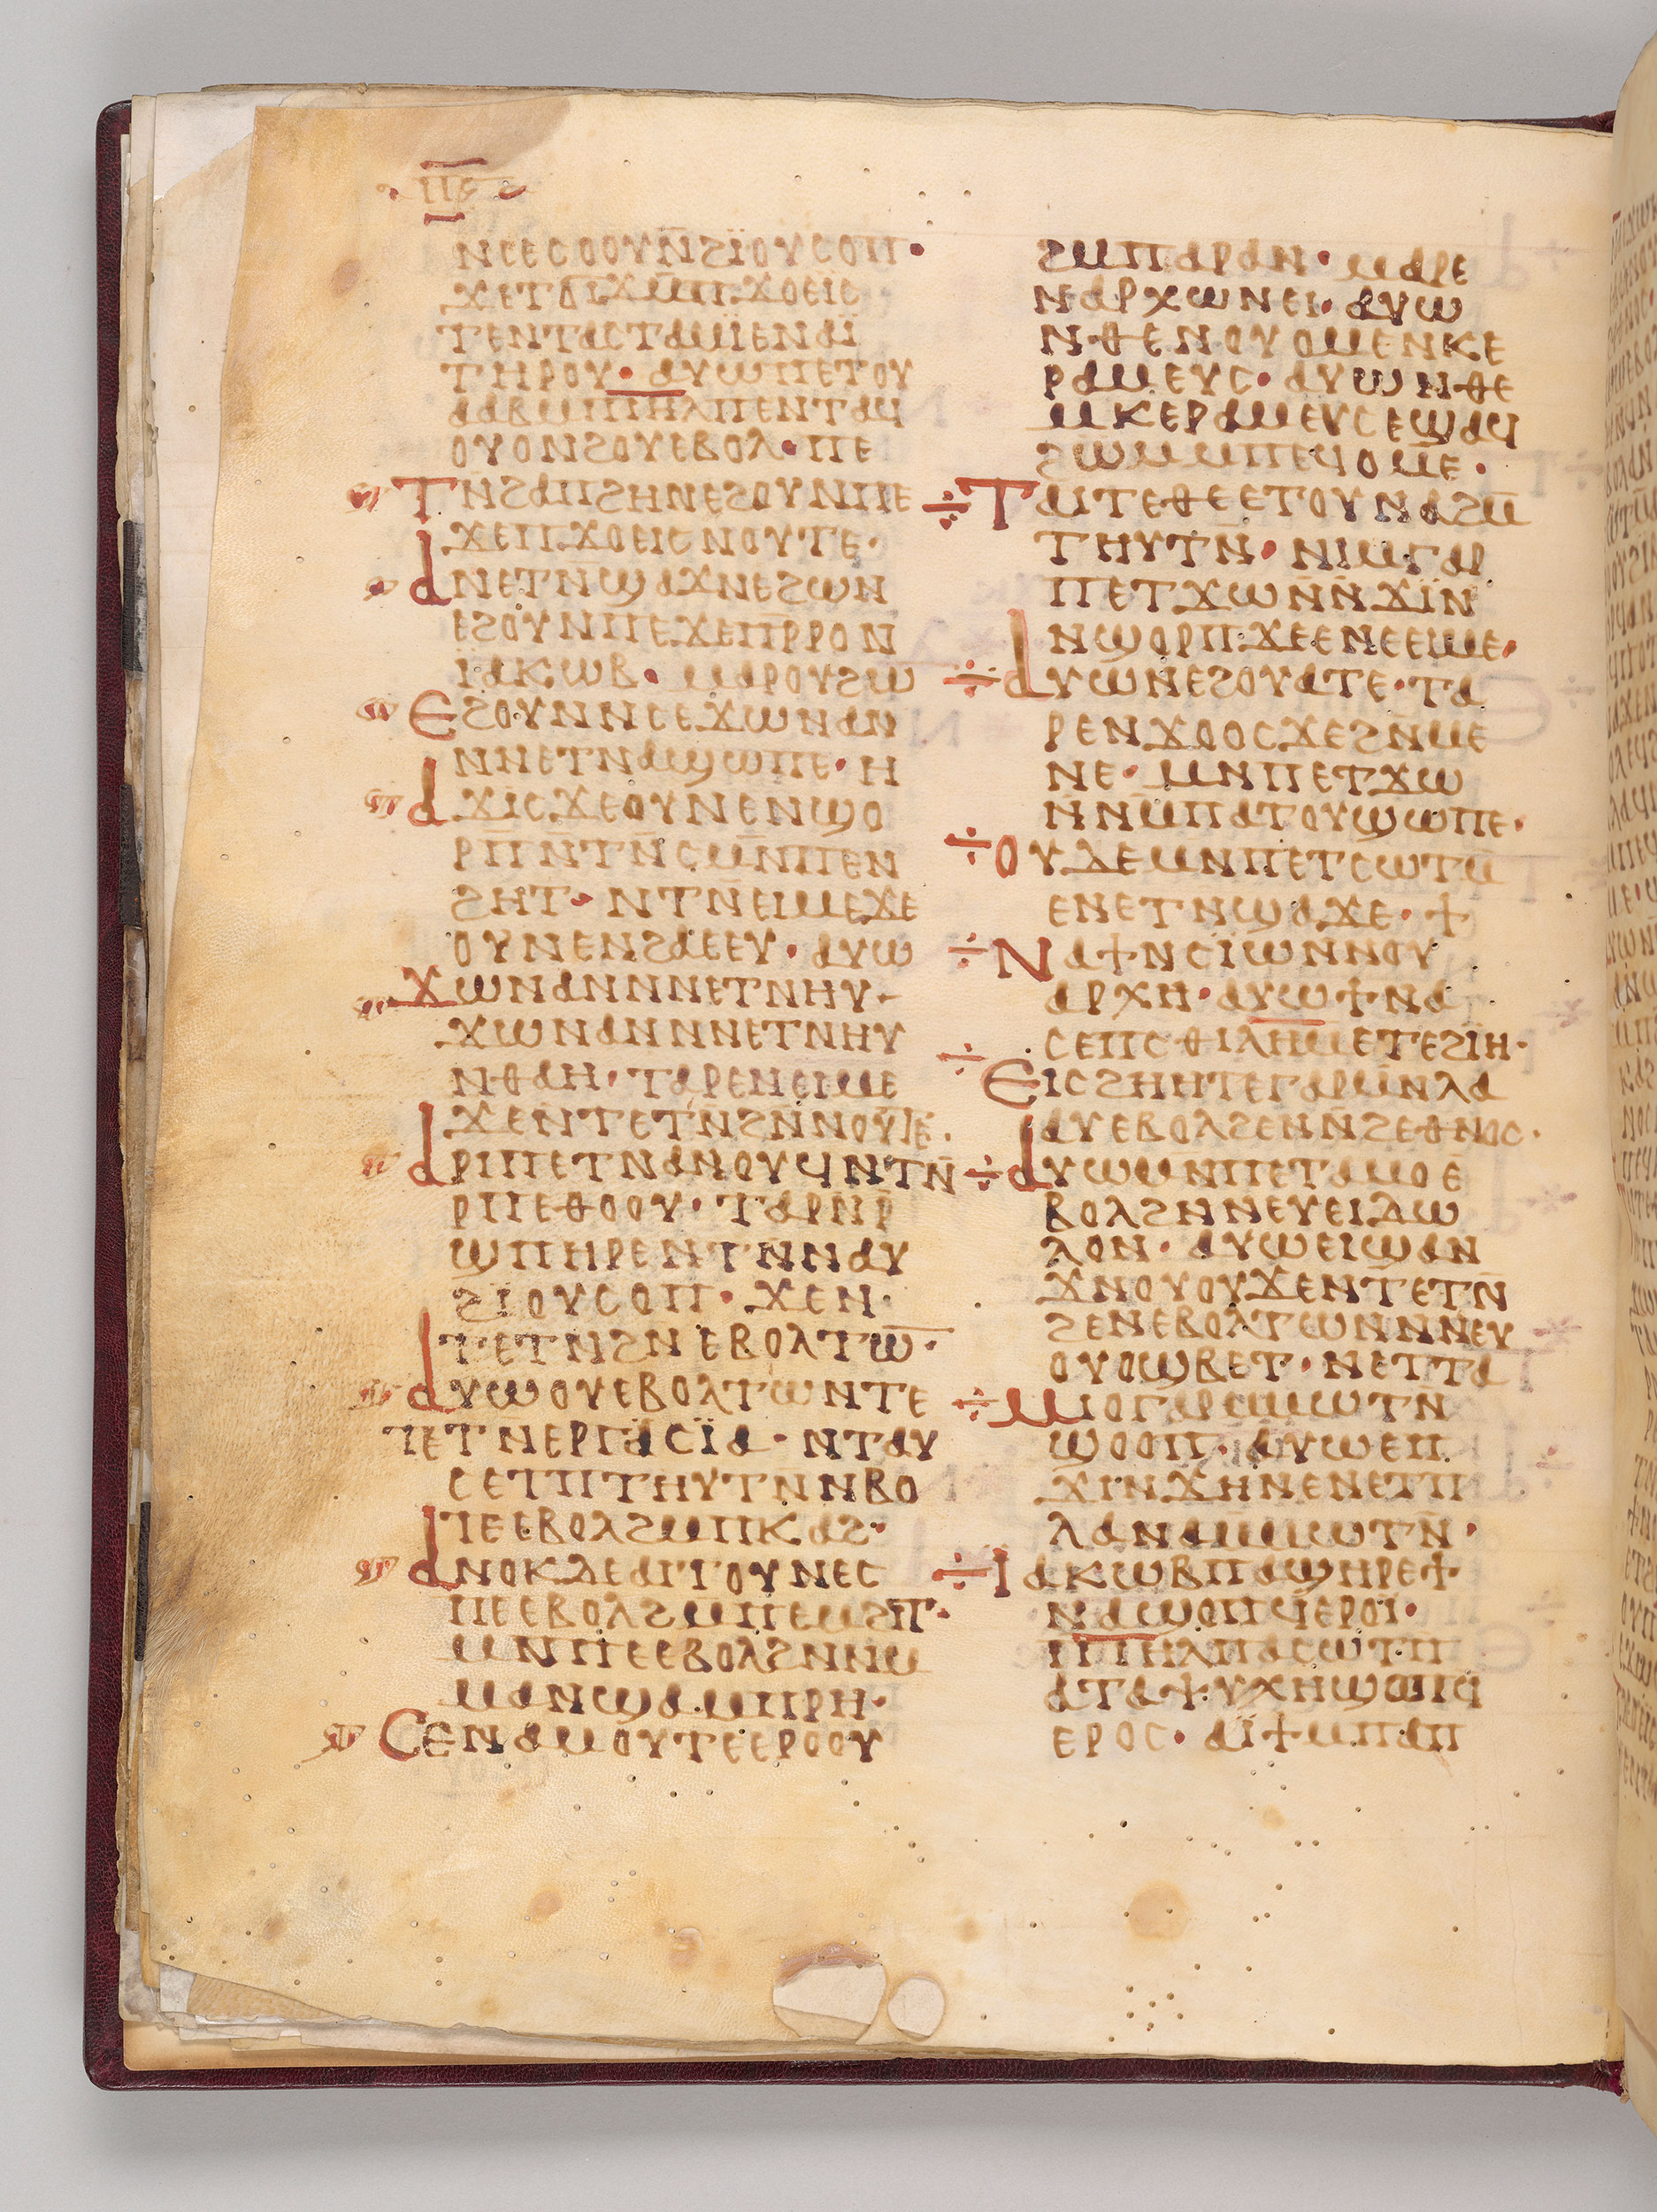 ⲡⲉ
ⲛⲥⲉⲥⲟⲟⲩⲛ̄ϩⲓ̈ⲟⲩⲥⲟⲡ·
ϫⲉⲧⲁⲓϫⲙ̄ⲡϫⲟⲉⲓⲥ
ⲧⲉⲛⲧⲁⲥⲧⲁⲙⲓ̈ⲉⲛⲁⲓ̈
ⲧⲏⲣⲟⲩ· ⲁⲩⲱⲡⲉⲧⲟⲩ
ⲁⲁⲃⲙ̄ⲡⲓⲏⲗⲡⲉⲛⲧⲁϥ
ⲟⲩⲟⲛϩⲟⲩⲉⲃⲟⲗ· ⲡⲉ
ⲧⲛϩⲁⲡϩⲏⲛⲉϩⲟⲩⲛⲡⲉ
ϫⲉⲡϫⲟⲉⲓⲥⲛⲟⲩⲧⲉ·
ⲁⲛⲉⲧⲛ̄ϣⲁϫⲛⲉϩⲱⲛ
ⲉϩⲟⲩⲛⲡⲉϫⲉⲡⲣ̄ⲣⲟⲛ
ⲓ̈ⲁⲕⲱⲃ· ⲙⲁⲣⲟⲩϩⲱ
ⲉϩⲟⲩⲛⲛⲥⲉϫⲱⲛⲁⲛ
ⲛⲛⲉⲧⲛⲁϣⲱⲡⲉ· ⲏ
ⲁϫⲓⲥϫⲉⲟⲩⲛⲉⲛϣⲟ
ⲣⲡ̄ⲛ̄ⲧⲛ̄ⲥⲙ̄ⲛⲡⲉⲛ
ϩⲏⲧ· ⲛⲧⲛ̄ⲉⲓⲙⲉϫⲉ
ⲟⲩⲛⲉⲛϩⲁⲉⲉⲩ· ⲁⲩⲱ
ϫⲱⲛⲁⲛⲛⲛⲉⲧⲛⲏⲩ-
ϫⲱⲛⲁⲛⲛⲛⲉⲧⲛⲏⲩ
ⲛⲑⲁⲏ· ⲧⲁⲣⲉⲛⲉⲓⲙⲉ
ϫⲉⲛⲧⲉⲧⲛ̄ϩⲛ̄ⲛⲟⲩⲧⲉ·
ⲁⲣⲓⲡⲉⲧⲛⲁⲛⲟⲩϥⲛⲧⲛ̄
ⲣⲡⲉⲑⲟⲟⲩ· ⲧⲁⲣⲛ̄ⲣ̄
ϣⲡⲏⲣⲉⲛⲧⲛ̄ⲛⲁⲩ
ϩⲓ̈ⲟⲩⲥⲟⲡ· ϫⲉⲛ·
ⲧⲉⲧⲛϩⲛⲉⲃⲟⲗⲧⲱ̄·
ⲁⲩⲱⲟⲩⲉⲃⲟⲗⲧⲱⲛⲧⲉ
ⲧⲉⲧⲛ̄ⲉⲣⲅⲁⲥⲓ̈ⲁ· ⲛⲧⲁⲩ
ⲥⲉⲧⲡⲧⲏⲩⲧⲛ̄ⲛⲃⲟ
ⲧⲉⲉⲃⲟⲗϩⲙⲡⲕⲁϩ·
ⲁⲛⲟⲕⲇⲉⲁⲓⲧⲟⲩⲛⲉⲥ
ⲡⲉⲉⲃⲟⲗϩⲙ̄ⲡⲉⲙϩⲓⲧ·
ⲙⲛⲡⲉⲉⲃⲟⲗϩⲛⲛⲙ̄
ⲙⲁⲛϣⲁⲙⲡⲣⲏ·
ⲥⲉⲛⲁⲙⲟⲩⲧⲉⲉⲣⲟⲟⲩ
ϩⲙⲡⲁⲣⲁⲛ· ⲙⲁⲣⲉ
ⲛⲁⲣⲭⲱⲛⲉⲓ· ⲁⲩⲱ
ⲛⲑⲉⲛⲟⲩⲟⲙⲉⲛⲕⲉ
ⲣⲁⲙⲉⲩⲥ· ⲁⲩⲱⲛⲑⲉ
ⲙⲕⲉⲣⲁⲙⲉⲩⲥⲉϣⲁϥ
ϩⲱⲙⲙⲡⲉϥⲟⲙⲉ·
ⲧⲁⲓⲧⲉⲑⲉⲉⲧⲟⲩⲛⲁϩⲙ̄
ⲧⲏⲩⲧⲛ̄· ⲛⲓⲙⲅⲁⲣ
ⲡⲉⲧϫⲱⲛ̄ⲛ̄ϫⲓ̈ⲛ
ⲛϣⲟⲣⲡ·ϫⲉⲉⲛⲉⲉⲓⲙⲉ·
ⲁⲩⲱⲛⲉϩⲟⲩⲁⲧⲉ· ⲧⲁ
ⲣⲉⲛϫⲟⲟⲥϫⲉϩⲛ̄ⲙⲉ
ⲛⲉ· ⲙⲛⲡⲉⲧϫⲱ
ⲛ̄ⲛⲙ̄ⲡⲁⲧⲟⲩϣⲱⲡⲉ·
ⲟⲩⲇⲉⲙⲛⲡⲉⲧⲥⲱⲧⲙ̄
ⲉⲛⲉⲧⲛϣⲁϫⲉ· ϯ
ⲛⲁϯⲛⲥⲓ̈ⲱⲛⲛⲟⲩ
ⲁⲣⲭⲏ· ⲁⲩⲱϯⲛⲁ
ⲥⲉⲡⲥⲑⲓⲗⲏⲙⲉⲧⲉϩⲓⲏ·
ⲉⲓⲥϩⲏⲏⲧⲉⲅⲁⲣⲙ̄ⲛⲗⲁ
ⲁⲩⲉⲃⲟⲗϩⲉⲛⲛ̄ϩⲉⲑⲛⲟⲥ·
ⲁⲩⲱⲙ̄ⲛⲡⲉⲧⲁⲙⲟⲉ
ⲃⲟⲗϩⲛⲛⲉⲩⲉⲓⲇⲱ
ⲗⲟⲛ· ⲁⲩⲱⲉⲓϣⲁⲛ
ϫⲛⲟⲩⲟⲩϫⲉⲛⲧⲉⲧⲛ̄
ϩⲉⲛⲉⲃⲟⲗⲧⲱⲛⲛⲛⲉⲩ
ⲟⲩⲟϣⲃⲉⲧ· ⲛⲉⲧⲧⲁ
ⲙⲓⲟⲅⲁⲣⲙ̄ⲙⲱⲧⲛ
ϣⲟⲟⲡ· ⲁⲩⲱⲉⲡ
ϫⲓⲛϫⲏⲛⲉⲛⲉⲧⲡ
ⲗⲁⲛⲁⲙ̄ⲙⲱⲧⲛ̄·
ⲓⲁⲕⲱⲃⲡⲁϣⲏⲣⲉϯ
ⲛⲁϣⲟⲡϥⲉⲣⲟⲓ·
ⲡⲓⲏⲗⲡⲁⲥⲱⲧⲡ
ⲁⲧⲁⲯⲩⲭⲏϣⲟⲡϥ
ⲉⲣⲟⲥ· ⲁⲓ̈ϯⲙⲡⲁⲡ